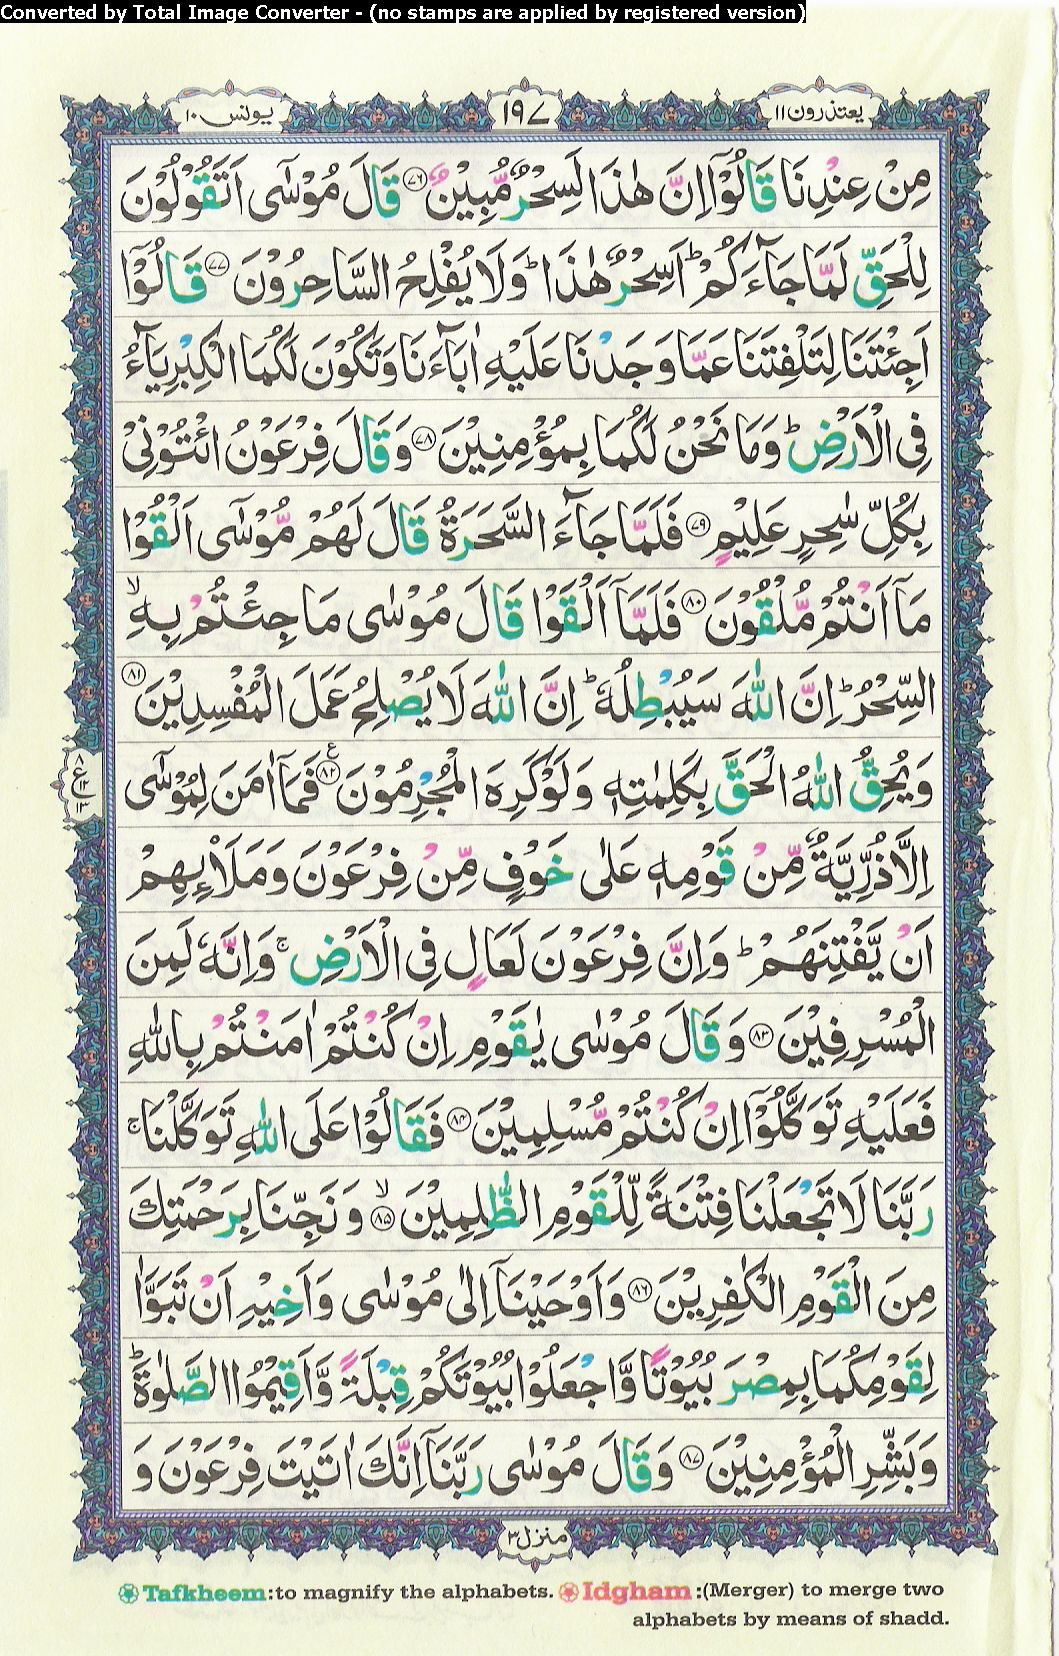 Converted by Total Image Converter - (no stamps are applied by registered version)
يعتذرون ١١
١٩٧
يونس ١٠
مِنْ عِنْدِنَا قَالُوْۤا اِنَّ هٰذَا لَسِحْرٌ مُّبِيْنٌ ﴿٧٦﴾ قَالَ مُوْسٰۤى اَتَقُوْلُوْنَ
لِلْحَقِّ لَمَّا جَآءَكُمْ ؕ اَسِحْرٌ هٰذَا ؕ وَلَا يُفْلِحُ السَّاحِرُوْنَ ﴿٧٧﴾ قَالُوْۤا
اَجِئْتَنَا لِتَلْفِتَنَا عَمَّا وَجَدْنَا عَلَيْهِ اٰبَآءَنَا وَتَكُوْنَ لَكُمَا الْكِبْرِيَآءُ
فِى الْاَرْضِ ؕ وَمَا نَحْنُ لَكُمَا بِمُؤْمِنِيْنَ ﴿٧٨﴾ وَقَالَ فِرْعَوْنُ ائْتُوْنِىْ
بِكُلِّ سٰحِرٍ عَلِيْمٍ ﴿٧٩﴾ فَلَمَّا جَآءَ السَّحَرَةُ قَالَ لَهُمْ مُّوْسٰۤى اَلْقُوْا
مَاۤ اَنْتُمْ مُّلْقُوْنَ ﴿٨٠﴾ فَلَمَّاۤ اَلْقَوْا قَالَ مُوْسٰى مَا جِئْتُمْ بِهِ ۙ
السِّحْرُ ؕ اِنَّ اللّٰهَ سَيُبْطِلُهٗ ؕ اِنَّ اللّٰهَ لَا يُصْلِحُ عَمَلَ الْمُفْسِدِيْنَ ﴿٨١﴾
وَيُحِقُّ اللّٰهُ الْحَقَّ بِكَلِمٰتِهٖ وَلَوْ كَرِهَ الْمُجْرِمُوْنَ ﴿٨٢﴾ ع فَمَاۤ اٰمَنَ لِمُوْسٰۤى
اِلَّا ذُرِّيَّةٌ مِّنْ قَوْمِهٖ عَلٰى خَوْفٍ مِّنْ فِرْعَوْنَ وَمَلَا۟ئِهِمْ
اَنْ يَّفْتِنَهُمْ ؕ وَاِنَّ فِرْعَوْنَ لَعَالٍ فِى الْاَرْضِ ۚ وَاِنَّهٗ لَمِنَ
الْمُسْرِفِيْنَ ﴿٨٣﴾ وَقَالَ مُوْسٰى يٰقَوْمِ اِنْ كُنْتُمْ اٰمَنْتُمْ بِاللّٰهِ
فَعَلَيْهِ تَوَكَّلُوْۤا اِنْ كُنْتُمْ مُّسْلِمِيْنَ ﴿٨٤﴾ فَقَالُوْا عَلَى اللّٰهِ تَوَكَّلْنَا ۚ
رَبَّنَا لَا تَجْعَلْنَا فِتْنَةً لِّلْقَوْمِ الظّٰلِمِيْنَ ۙ ﴿٨٥﴾ وَنَجِّنَا بِرَحْمَتِكَ
مِنَ الْقَوْمِ الْكٰفِرِيْنَ ﴿٨٦﴾ وَاَوْحَيْنَاۤ اِلٰى مُوْسٰى وَاَخِيْهِ اَنْ تَبَوَّاٰ
لِقَوْمِكُمَا بِمِصْرَ بُيُوْتًا وَّاجْعَلُوْا بُيُوْتَكُمْ قِبْلَةً وَّاَقِيْمُوا الصَّلٰوةَ ؕ
وَبَشِّرِ الْمُؤْمِنِيْنَ ﴿٨٧﴾ وَقَالَ مُوْسٰى رَبَّنَاۤ اِنَّكَ اٰتَيْتَ فِرْعَوْنَ وَ
منزل ٣
Tafkheem:to magnify the alphabets. Idgham :(Merger) to merge two
alphabets by means of shadd.